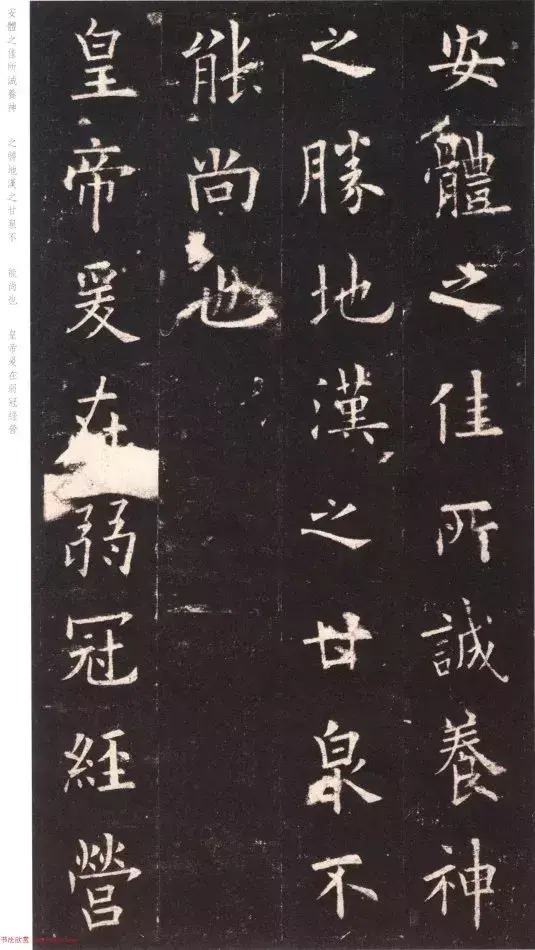 安體之佳所誠養神
之勝地漢之甘泉不
能尚也
皇帝爰在弱冠經營
安體之佳所誠養神 之勝地漢之甘泉不 能尚也 皇帝爰在弱冠經營
书法欣赏